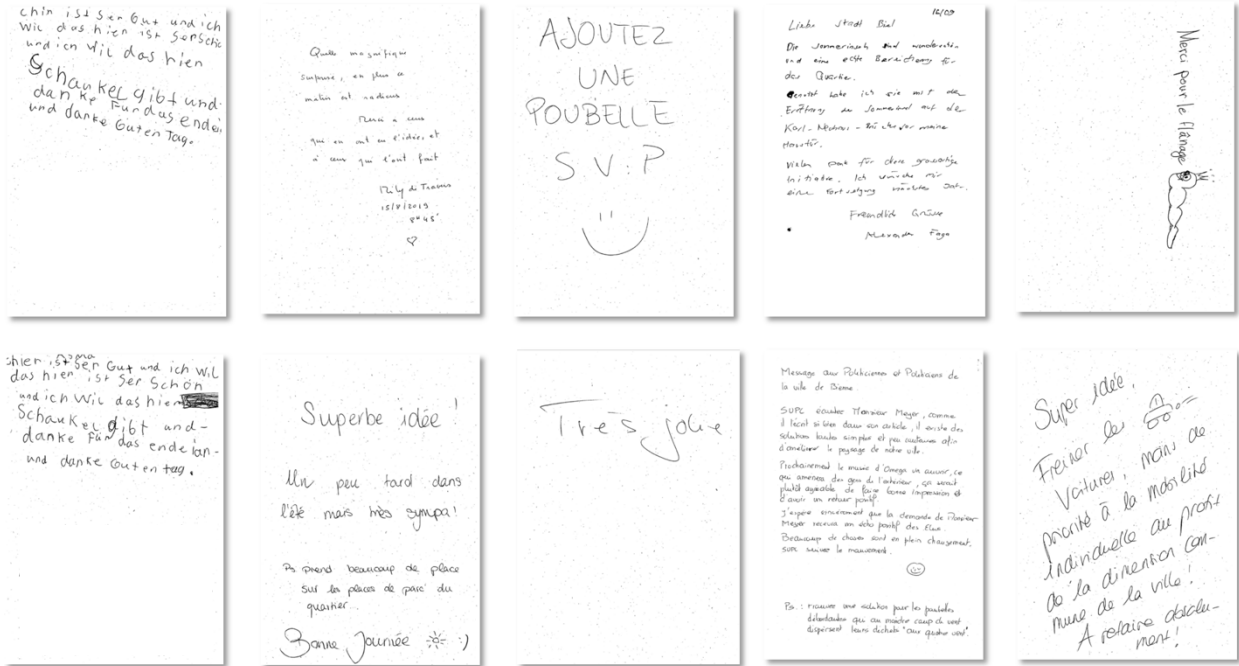 chin ist ser Gut und ich
Wil das hier ist serschö
und ich Wil das hien
Schaukel gibt und
danke Für das endei
und danke Guten Tag.
Quelle magnifique
surprise, en plus ce
matin est radieux
Merci à ceux
qui en ont eu l'idée, et
à ceux qui l'ont fait
15/8/2019
8h45
AJOUTEZ
UNE
POUBELLE
S.V.P
16/09
Liebe Stadt Biel
Die Sommerinseln sind
und eine echte Bereicherung für
das Quartier.
habe ich sie mit der
Eröffnung der Sommerinsel auf der
Karl-Neuhaus- vor meine
Haustür.
Vielen Dank für diese grossartige
Initiative. Ich wünsche mir
eine Fortsetzung nächstes Jahr.
Freundliche Grüsse
Alexander
Merci pour le flânage
hier ist ser Gut und ich Wil
das hier ist ser schön
und ich Wil das hier
Schaukel gibt und-
danke Für das ende lan-
und danke Guten tag.
Superbe idée !
Un peu tard dans
l'été mais très sympa!
Ps prend beaucoup de place
sur les places de parc du
quartier...
Bonne Journée :)
Très jolie
Message aux Politiciennes et Politiciens de
la ville de Bienne
SVPL écoutez Monsieur Meyer, comme
il l'écrit si bien dans son article, il existe des
solutions toutes simples et peu couteuses afin
d'améliorer le paysage de notre ville.
Prochainement le musée d'Omega va ouvrir, ce
qui amenera des gens de l'extérieur, ça serait
plutôt agréable de faire bonne impression et
d'avoir un retour positif.
J'espère sincèrement que la demande de Monsieur
Meyer recevra un écho positif des Elus.
Beaucoup de choses sont en plein changement,
SVPL suivez le mouvement.
Ps.: trouvez une solution pour les poubelles
débordantes qui au moindre coup de vent
dispersent leurs déchets "aux quatre vent".
Super idée,
Freiner les
voitures, moins de
priorité à la mobilité
individuelle au profit
de la dimension com-
mune de la ville!
A refaire absolu-
ment!